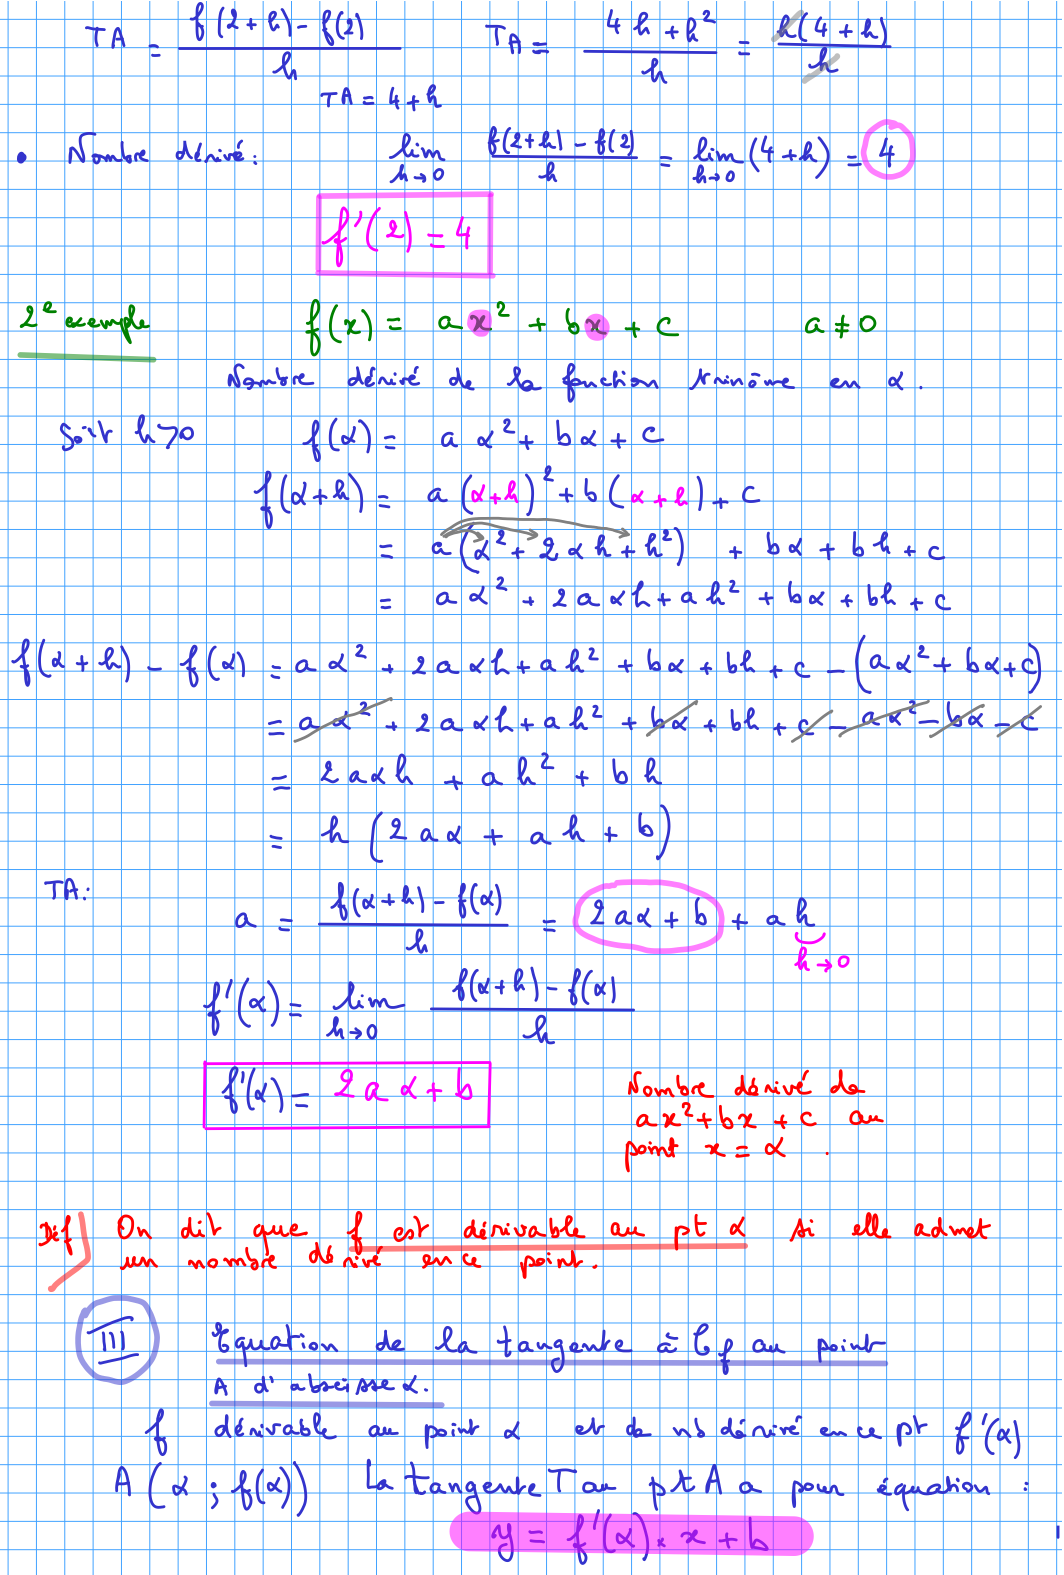 TA = (f(2+h) − f(2)) / h    TA = (4h + h²) / h = h(4+h) / h
TA = 4 + h
• Nombre dérivé : lim h→0 (f(2+h) − f(2)) / h = lim h→0 (4+h) = 4
f'(2) = 4
2e exemple    f(x) = a x² + bx + c    a ≠ 0
Nombre dérivé de la fonction trinôme en α.
Soit h>0    f(α) = a α² + bα + c
f(α+h) = a(α+h)² + b(α+h) + c
= a(α² + 2αh + h²) + bα + bh + c
= a α² + 2aαh + ah² + bα + bh + c
f(α+h) − f(α) = a α² + 2aαh + ah² + bα + bh + c − (aα² + bα + c)
= a α² + 2aαh + ah² + bα + bh + c − aα² − bα − c
= 2aαh + ah² + bh
= h (2aα + ah + b)
TA :
a = (f(α+h) − f(α)) / h = 2aα + b + ah
h→0
f'(α) = lim h→0 (f(α+h) − f(α)) / h
f'(α) = 2aα + b
Nombre dérivé de
ax² + bx + c au
point x = α.
Déf On dit que f est dérivable au pt α si elle admet
un nombre dérivé en ce point.
III Equation de la tangente à Cf au point
A d'abscisse α.
f dérivable au point α et de nb dérivé en ce pt f'(α)
A(α ; f(α)) La tangente T au pt A a pour équation :
y = f'(α) × x + b
1